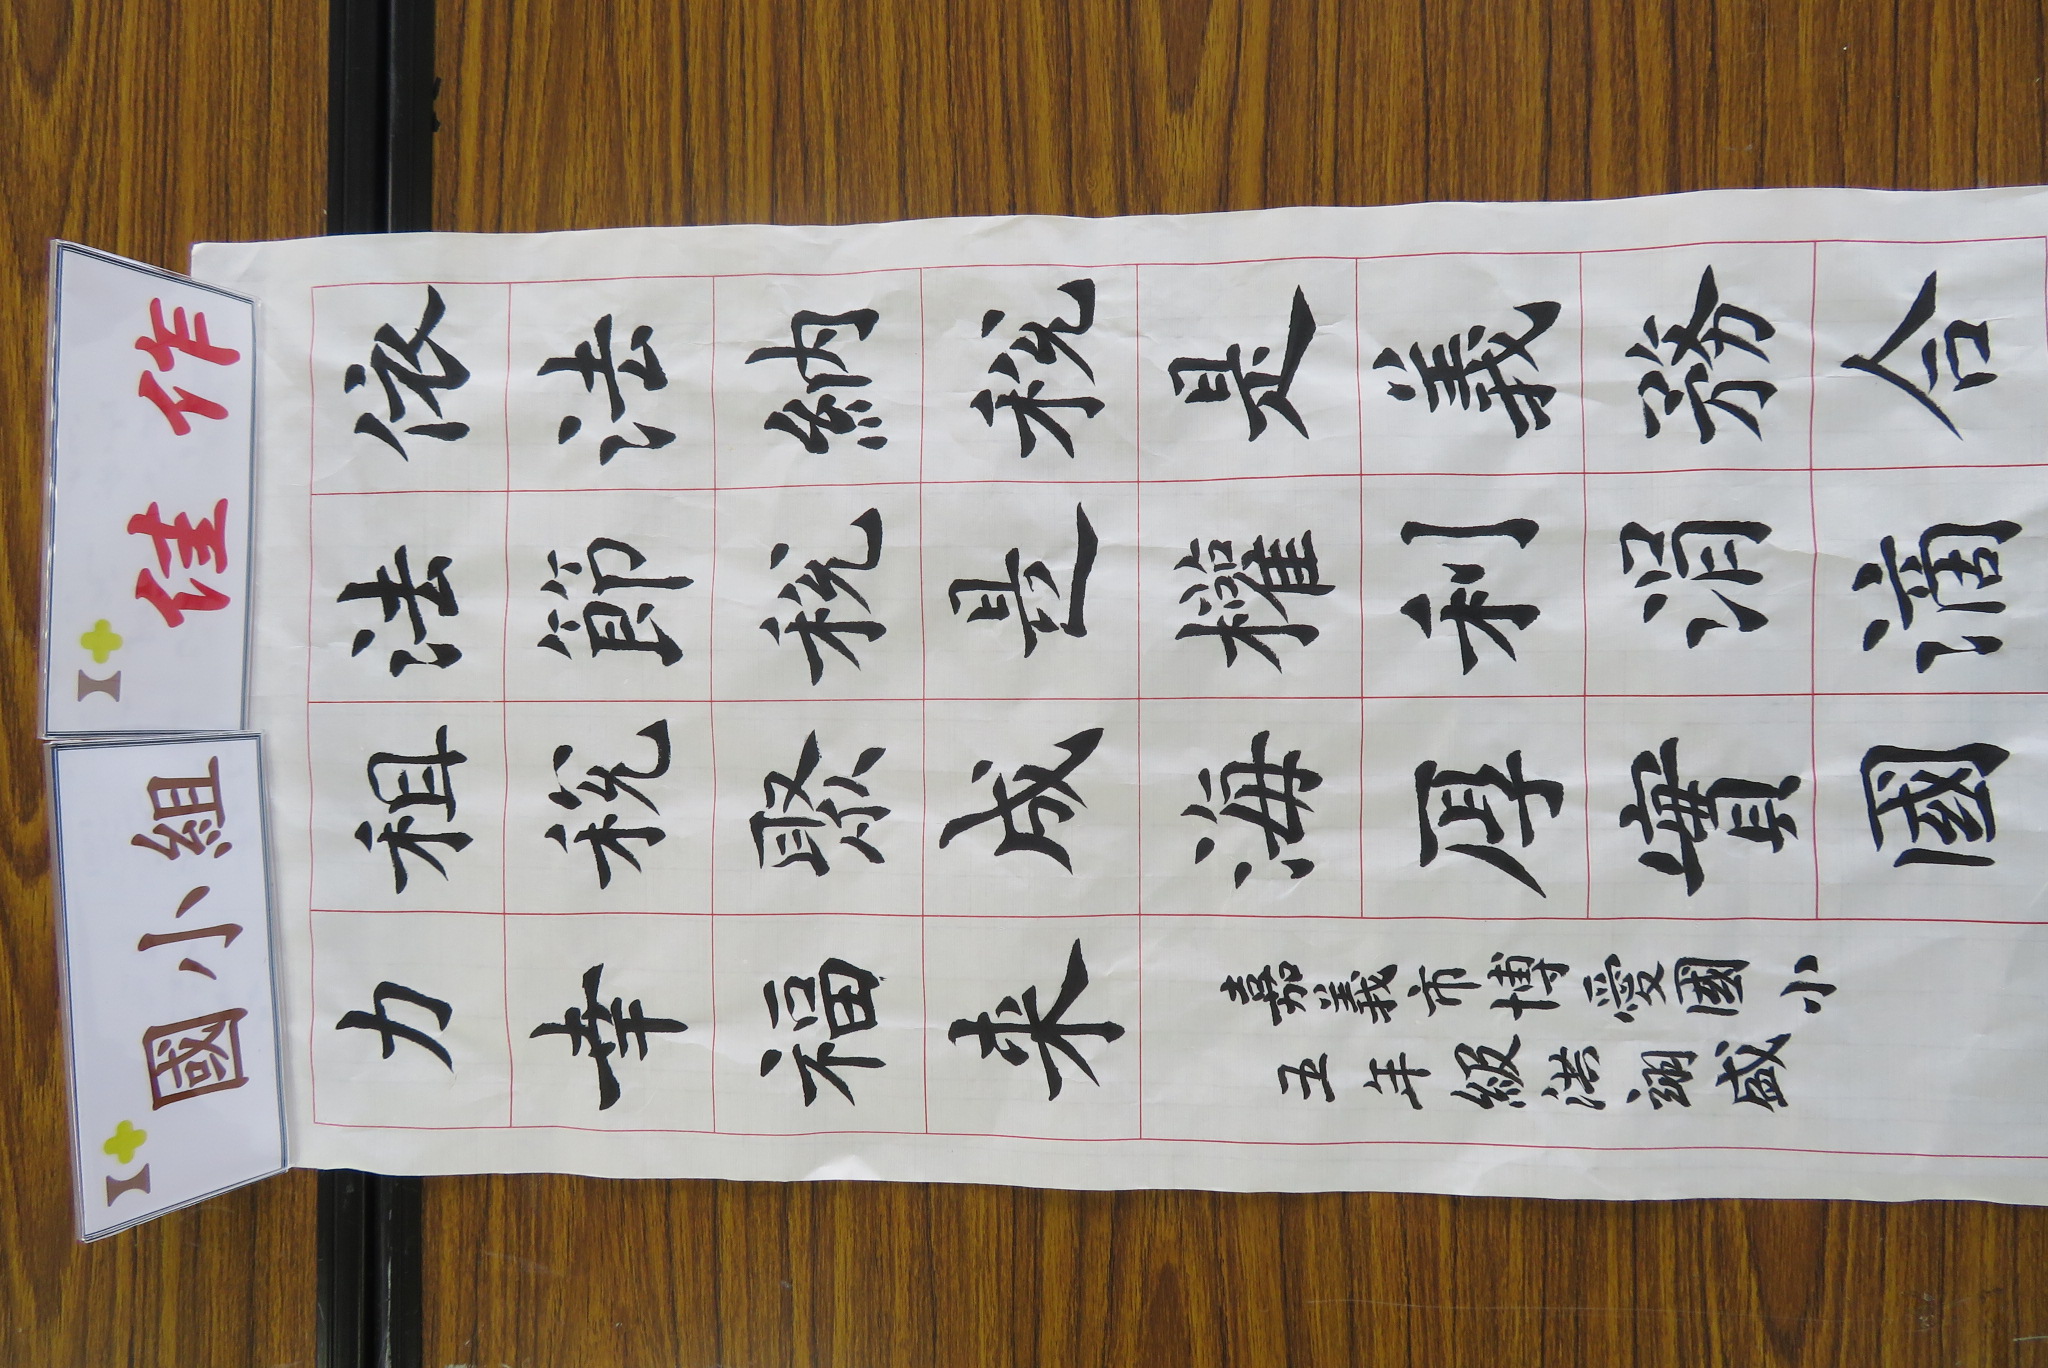 I+ 國小組
I+ 佳作
依法納稅是義務合
法節稅是權利涓滴
租稅聚成海厚實國
力幸福來
嘉義市博愛國小
五年級洪翊盛